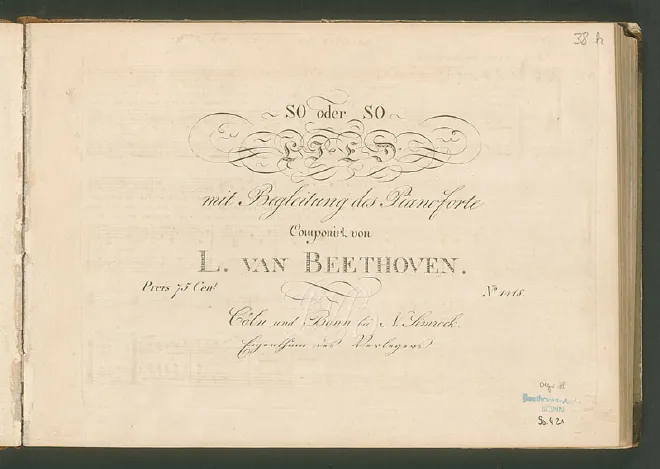 38 h
SO oder SO
LIED
mit Begleitung des Pianoforte
Componirt von
L. VAN BEETHOVEN.
Preis 75 Cent
Nº 1418.
Cöln und Bonn bei N. Simrock.
Eigenthum des Verlegers
BONN